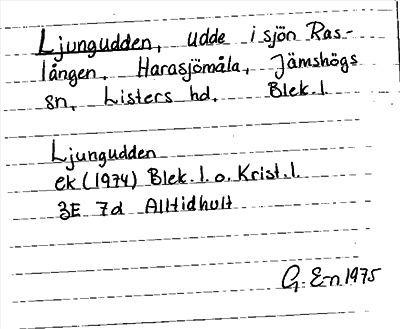 Ljungudden, udde i sjön Ras-
lången. Harasjömåla, Jämshögs
sn, Listers hd. Blek. l.
Ljungudden
ek (1974) Blek. l. o. Krist. l.
3E 7d Alltidhult
G. En 1975